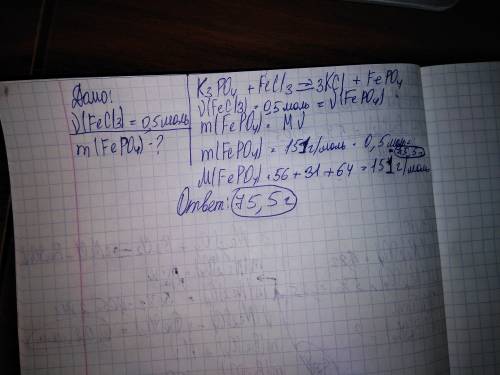 Дано:
ν(FeCl3) = 0,5 моль
m(FePO4) - ?
K3PO4 + FeCl3 → 3KCl + FePO4
ν(FeCl3) = 0,5 моль = ν(FePO4)
m(FePO4) = M ν
m(FePO4) = 151 г/моль · 0,5 моль = 75,5 г
M(FePO4) = 56 + 31 + 64 = 151 г/моль
Ответ: 75,5 г